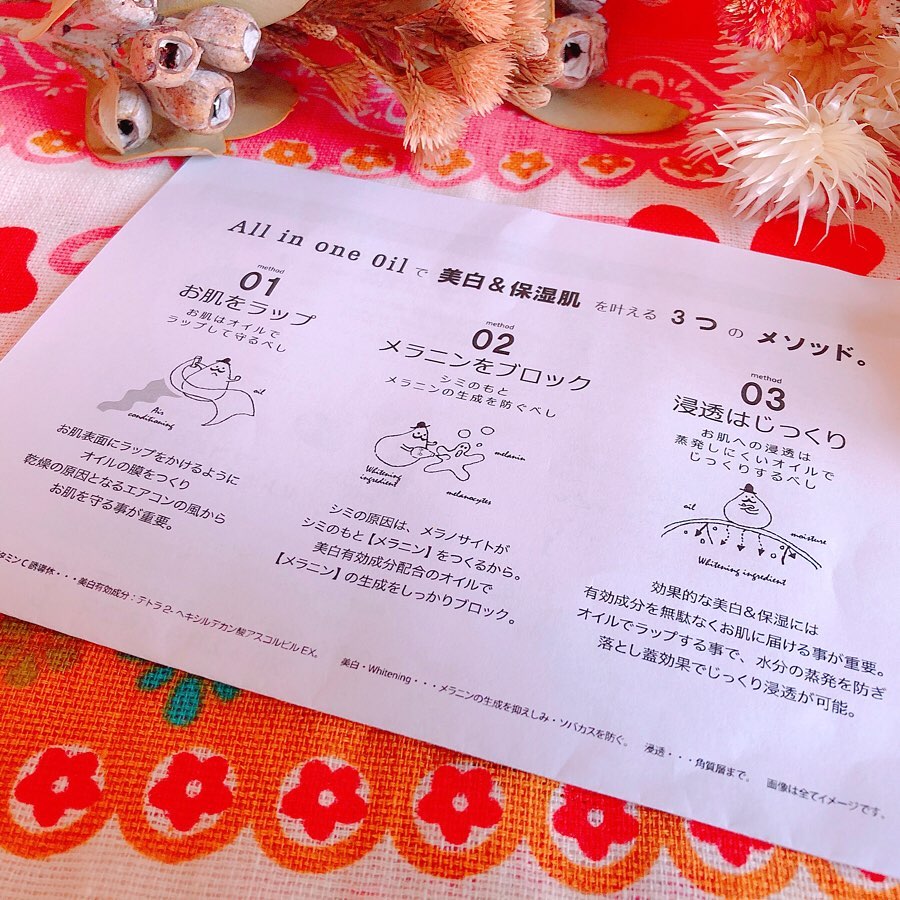 All in one Oil で 美白&保湿肌 を叶える 3つ の メソッド。
method
01
お肌をラップ
お肌はオイルで
ラップして守るべし
Air
conditioning
oil
お肌表面にラップをかけるように
オイルの膜をつくり
乾燥の原因となるエアコンの風から
お肌を守る事が重要。
method
02
メラニンをブロック
シミのもと
メラニンの生成を防ぐべし
Whitening
ingredient
melanin
melanocytes
シミの原因は、メラノサイトが
シミのもと【メラニン】をつくるから。
美白有効成分配合のオイルで
【メラニン】の生成をしっかりブロック。
method
03
浸透はじっくり
お肌への浸透は
蒸発しにくいオイルで
じっくりするべし
oil
moisture
Whitening ingredient
効果的な美白&保湿には
有効成分を無駄なくお肌に届ける事が重要。
オイルでラップする事で、水分の蒸発を防ぎ
落とし蓋効果でじっくり浸透が可能。
タミンC誘導体・・・美白有効成分:テトラ2-ヘキシルデカン酸アスコルビルEX。 美白・Whitening・・・メラニンの生成を抑えしみ・ソバカスを防ぐ。 浸透・・・角質層まで。 画像は全てイメージです。